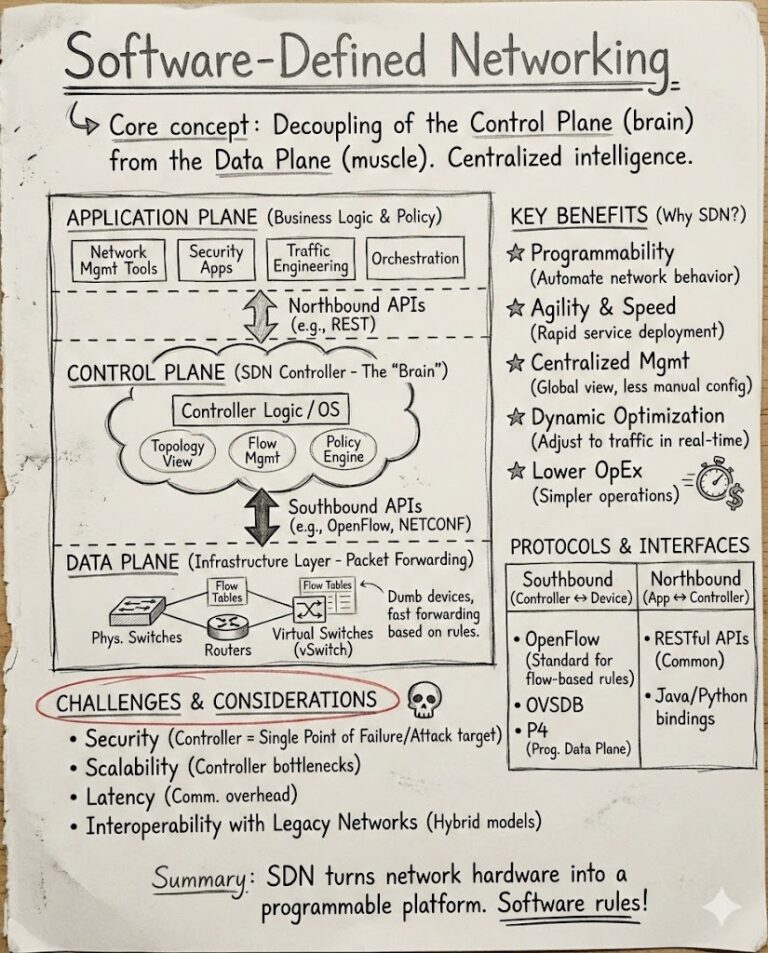 Software-Defined Networking
Core concept: Decoupling of the Control Plane (brain)
from the Data Plane (muscle). Centralized intelligence.
APPLICATION PLANE (Business Logic & Policy)
Network
Mgmt Tools
Security
Apps
Traffic
Engineering
Orchestration
Northbound APIs
(e.g., REST)
CONTROL PLANE (SDN Controller - The "Brain")
Controller Logic / OS
Topology
View
Flow
Mgmt
Policy
Engine
Southbound APIs
(e.g., OpenFlow, NETCONF)
DATA PLANE (Infrastructure Layer - Packet Forwarding)
Flow
Tables
Flow Tables
Phys. Switches
Routers
Virtual Switches
(vSwitch)
Dumb devices,
fast forwarding
based on rules.
KEY BENEFITS (Why SDN?)
Programmability
(Automate network behavior)
Agility & Speed
(Rapid service deployment)
Centralized Mgmt
(Global view, less manual config)
Dynamic Optimization
(Adjust to traffic in real-time)
Lower OpEx
(Simpler operations)
$
PROTOCOLS & INTERFACES
Southbound
(Controller ↔ Device)
• OpenFlow
(Standard for
flow-based rules)
• OVSDB
• P4
(Prog. Data Plane)
Northbound
(App ↔ Controller)
• RESTful APIs
(Common)
• Java/Python
bindings
CHALLENGES & CONSIDERATIONS
• Security (Controller = Single Point of Failure/Attack target)
• Scalability (Controller bottlenecks)
• Latency (Comm. overhead)
• Interoperability with Legacy Networks (Hybrid models)
Summary: SDN turns network hardware into a
programmable platform. Software rules!